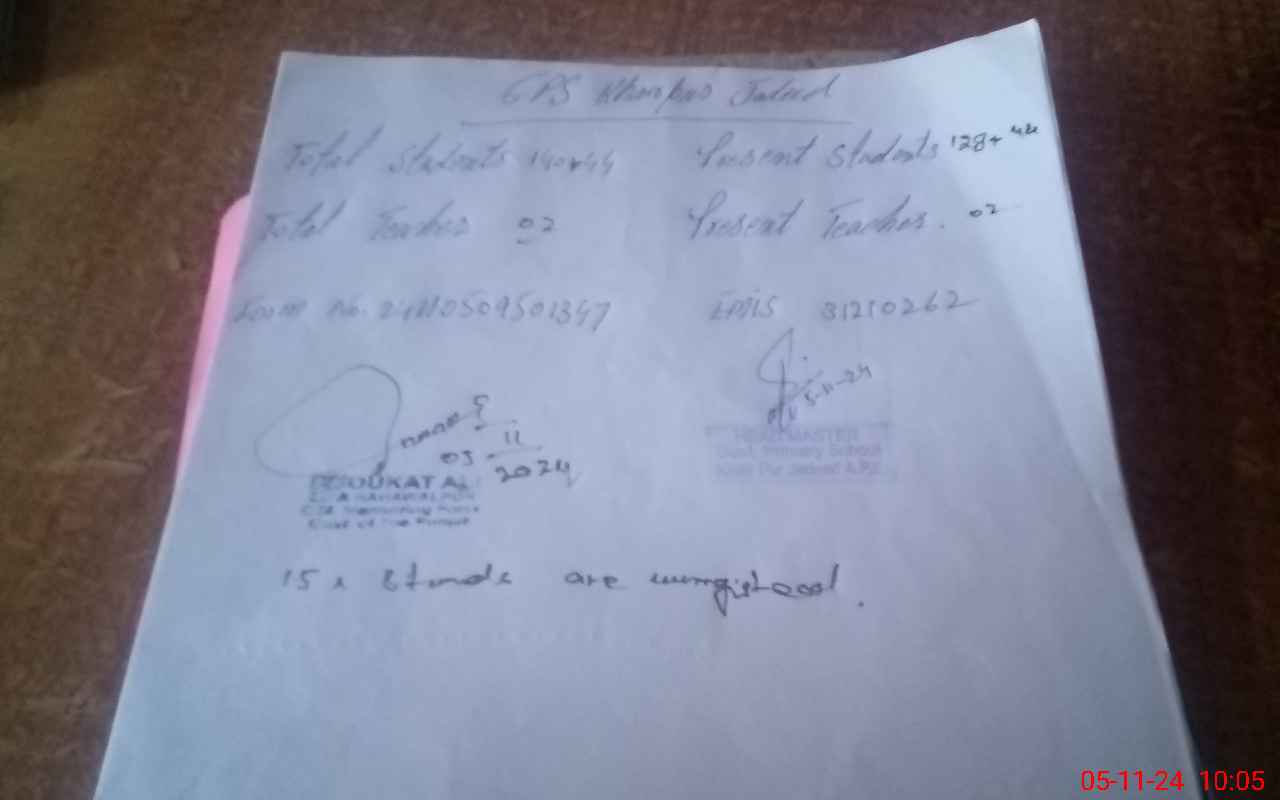 GPS Khanpur Jadeed
Total Students 140+44 Present Students 128+44
Total Teacher 02 Present Teacher. 02
No. 24110509501347 EMIS 31210262
5-11-24
05 11 2024
HEADMASTER
Govt. Primary School
Khan Pur Jadeed A.P.E
SHOUKAT ALI
BAHAWALPUR
Monitoring Force
Govt of The Punjab
15 x are unregistered.
05-11-24 10:05